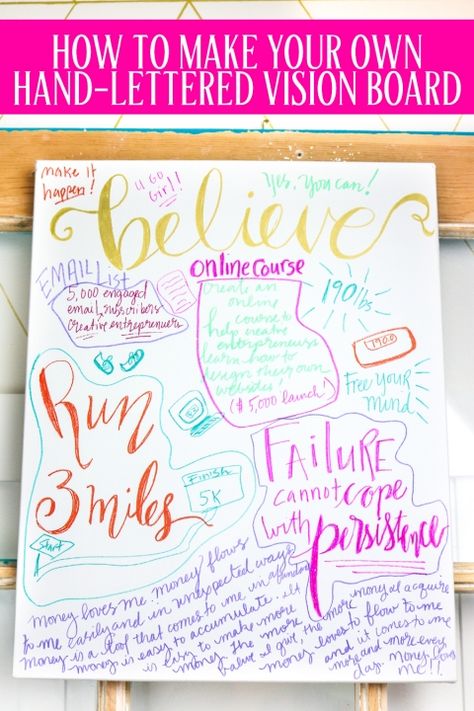 HOW TO MAKE YOUR OWN
HAND-LETTERED VISION BOARD
make it
happen!
u go
Girl!!
Yes, You Can!
believe
EMAIL List
5,000 engaged
email subscribers
creative entrepreneurs
Online Course
Create an
online
course to
help creative
entrepreneurs
learn how to
design their own
websites!
($5,000 launch!)
190lbs
190.0
Free Your
Mind
Run
3 miles
Start
Finish
5K
FAILURE
cannot cope
with persistence
Money loves me. Money flows
to me easily and in unexpected ways
Money is a tool that comes to me in
money is easy to accumulate. It
is easy to make more
money. The more
value I give, the more money I acquire
money loves to flow to me
and it comes to me
more and more every
day. Money
me!!